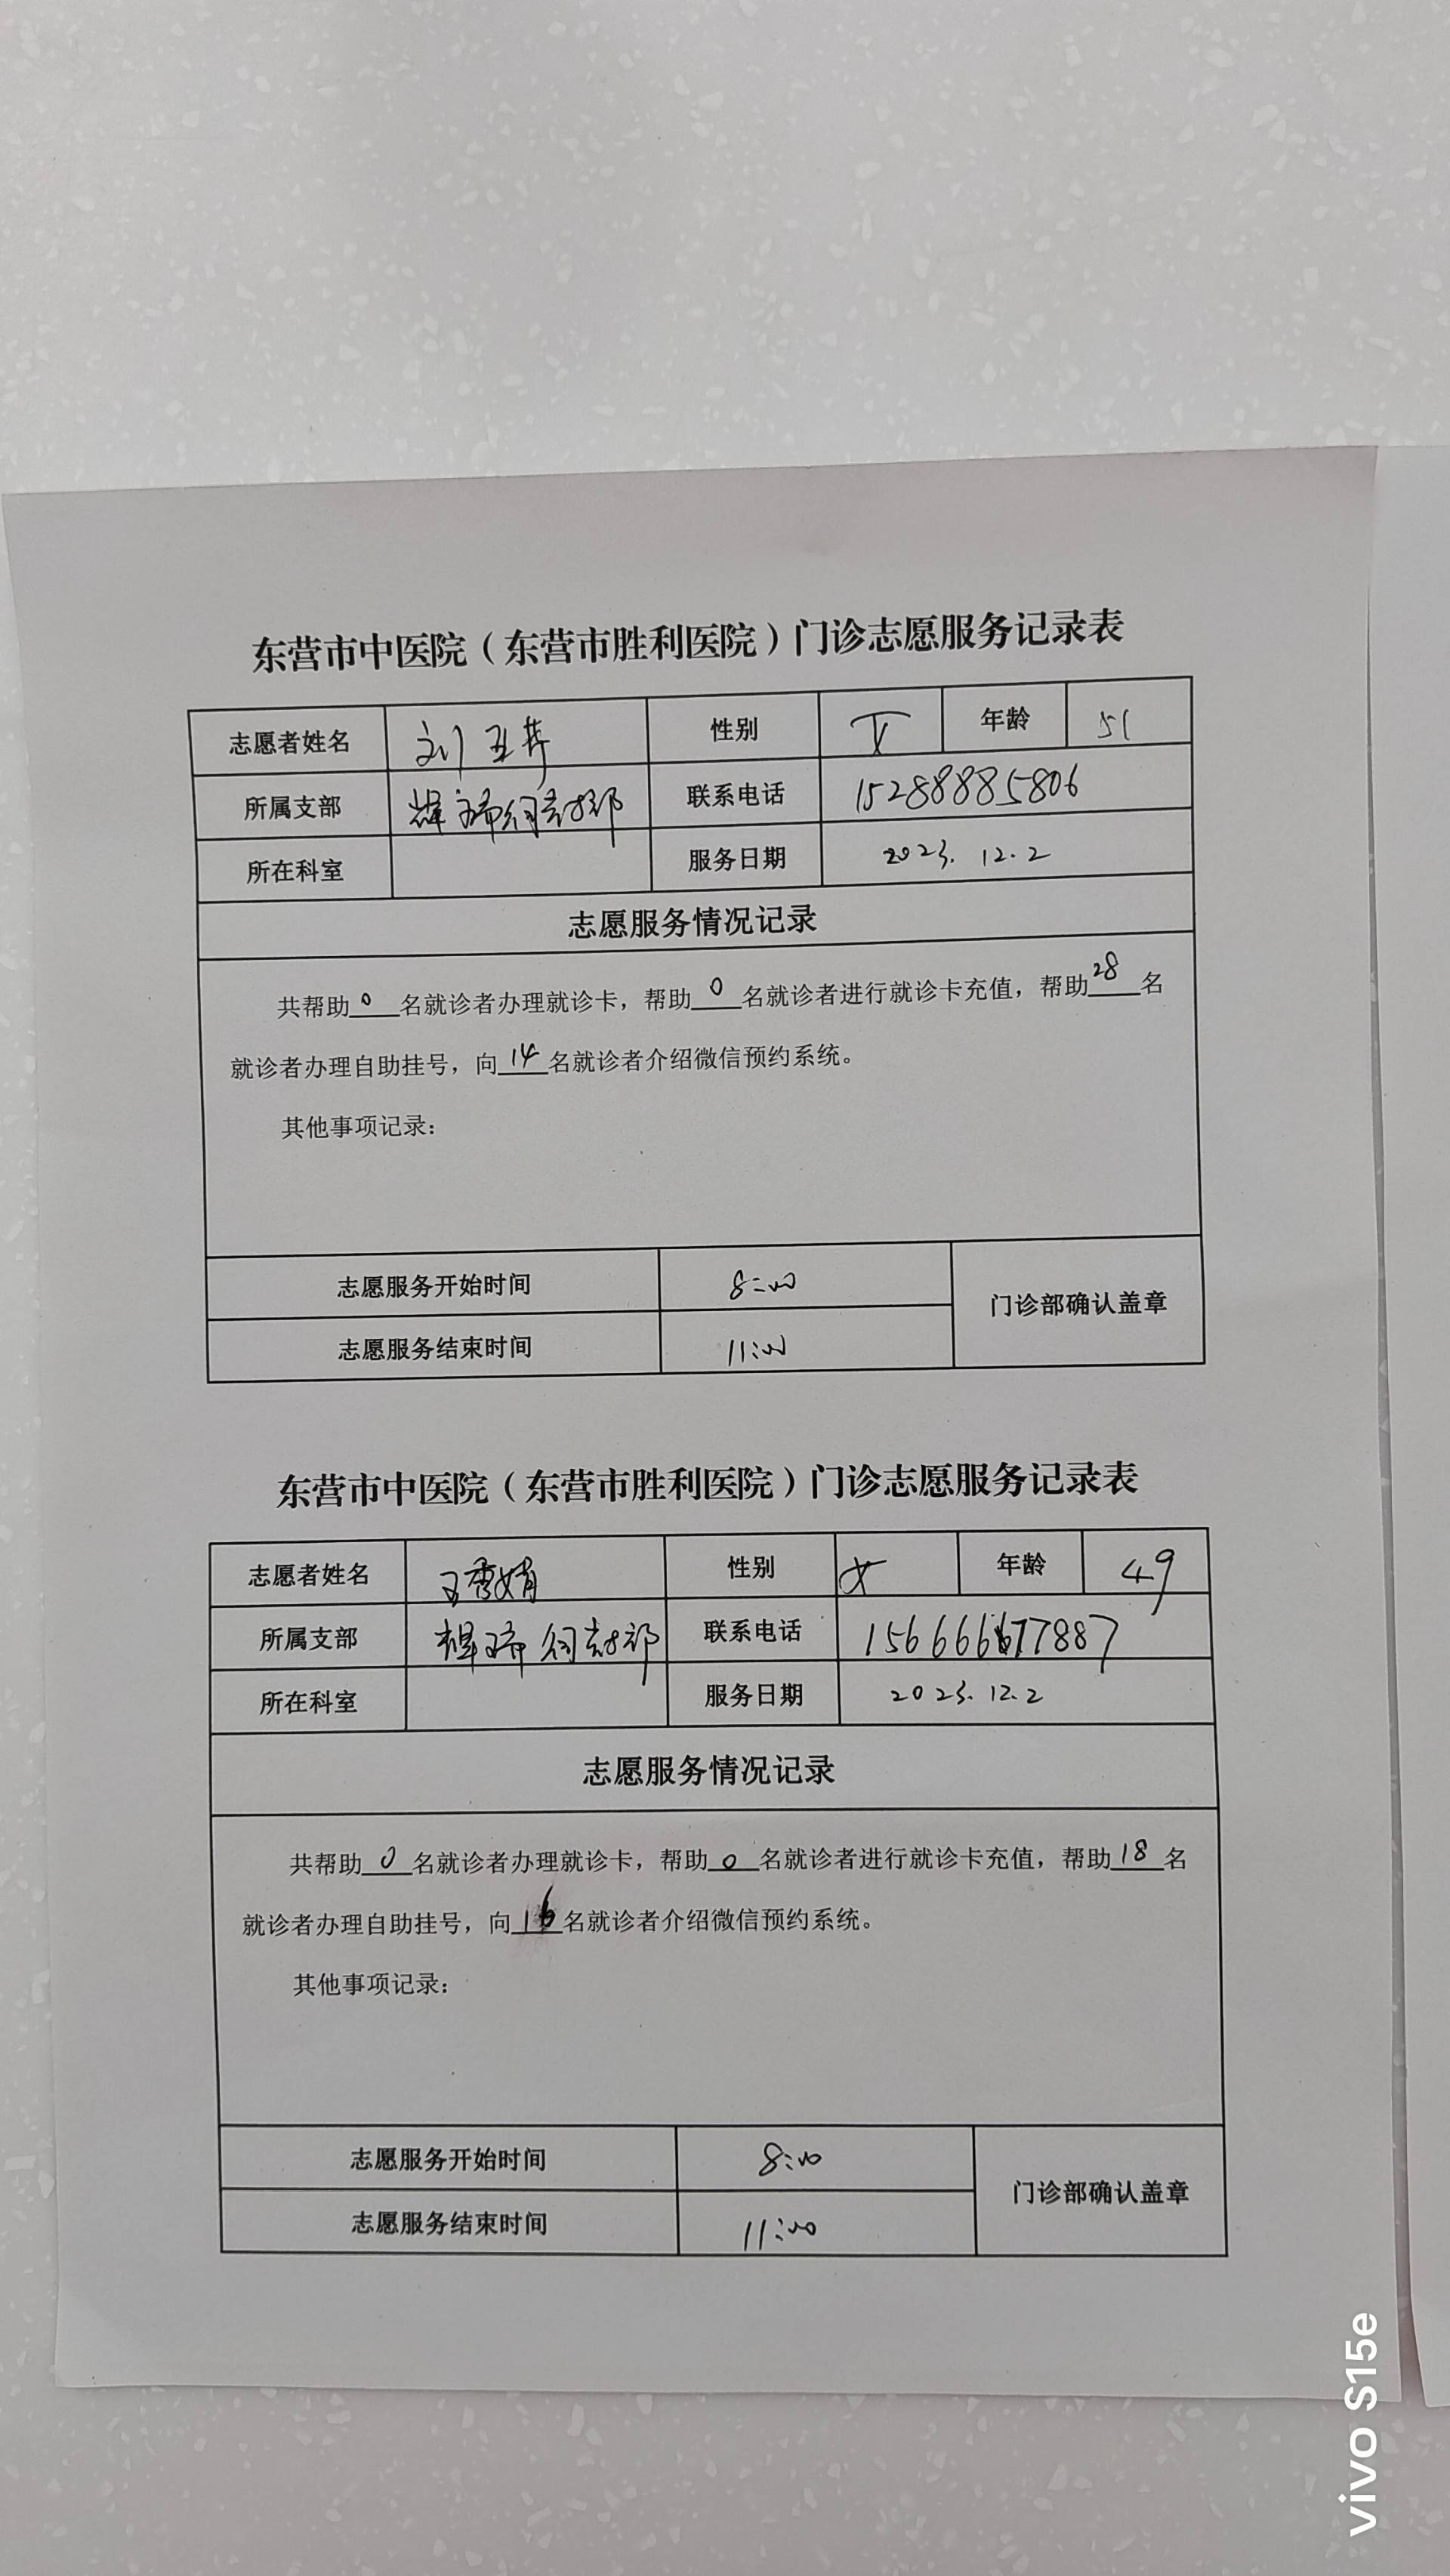 东营市中医院（东营市胜利医院）门诊志愿服务记录表
志愿者姓名 刘玉 性别 年龄 51
所属支部 联系电话 15288885806
所在科室 服务日期 2023.12.2
志愿服务情况记录
共帮助0名就诊者办理就诊卡，帮助0名就诊者进行就诊卡充值，帮助28名
就诊者办理自助挂号，向14名就诊者介绍微信预约系统。
其他事项记录：
志愿服务开始时间 8:00
门诊部确认盖章
志愿服务结束时间 11:00
东营市中医院（东营市胜利医院）门诊志愿服务记录表
志愿者姓名 王秀娟 性别 女 年龄 49
所属支部 联系电话
所在科室 服务日期 2023.12.2
志愿服务情况记录
共帮助0名就诊者办理就诊卡，帮助0名就诊者进行就诊卡充值，帮助18名
就诊者办理自助挂号，向16名就诊者介绍微信预约系统。
其他事项记录：
志愿服务开始时间 8:00
门诊部确认盖章
志愿服务结束时间 11:00
vivo S15e